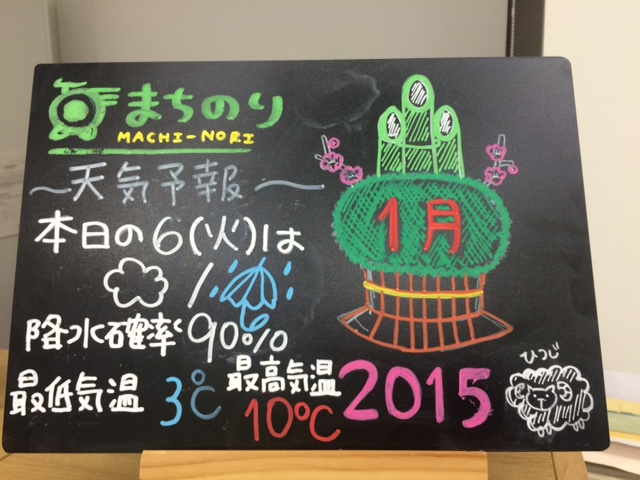 まちのり
MACHI-NORI
~天気予報~
1月
本日の6(火)は
/
降水確率90%
最低気温 3℃ 最高気温 10℃
2015
ひつじ